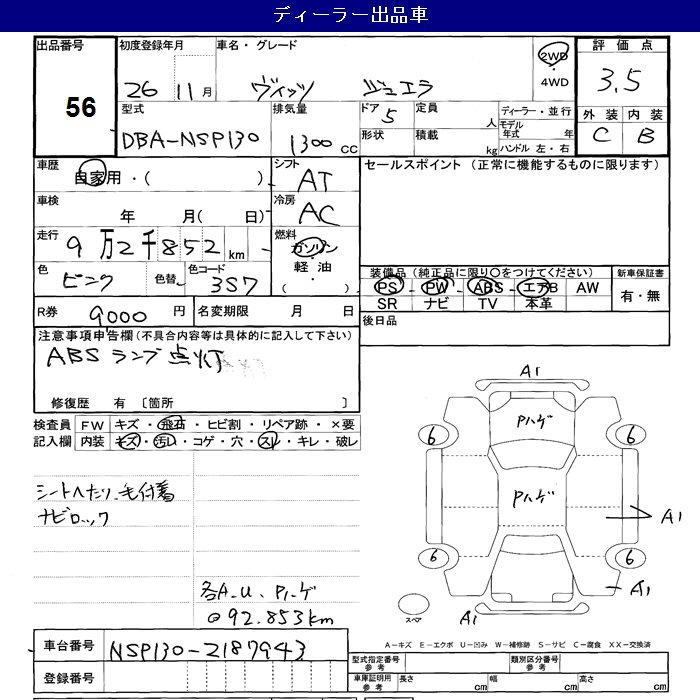 ディーラー出品車
出品番号 56
初度登録年月 26 11月
車名・グレード ヴィッツ ジュエラ
2WD・4WD
評価点 3.5
外装 内装
C B
型式 DBA-NSP130
排気量 1300 CC
ドア 5
定員 人
形状
積載 kg
ディーラー・並行
モデル年式 年
ハンドル 左・右
車歴 自家用・( )
シフト AT
セールスポイント (正常に機能するものに限ります)
車検 年 月( 日)
冷房 AC
走行 9万2千852km
燃料 ガソリン・軽油・
色 ピンク
色替
色コード 3S7
装備品(純正品に限り○をつけてください)
PS PW ABS エアB AW
SR ナビ TV 本革
新車保証書 有・無
R券 9000 円
名変期限 月 日
後日品
注意事項申告欄(不具合内容等は具体的に記入して下さい)
ABSランプ点灯
修復歴 有 〔箇所 〕
検査員 FW キズ・飛石・ヒビ割・リペア跡・×要
記入欄 内装 キズ・汚い・コゲ・穴・スレ・キレ・破レ
シートヘたり、毛付着
ナビロック
各A.U、Pハゲ
@92.853km
A1
Pハゲ
6 6
Pハゲ
A1
6 6
A1
スペア
A1
車台番号 NSP130-2187943
登録番号
A-キズ E-エクボ U-凹み W-補修跡 S-サビ C-腐食 XX-交換済
型式指定番号 参考
類別区分番号 参考
車庫証明用 参考 長さ cm 幅 cm 高さ cm